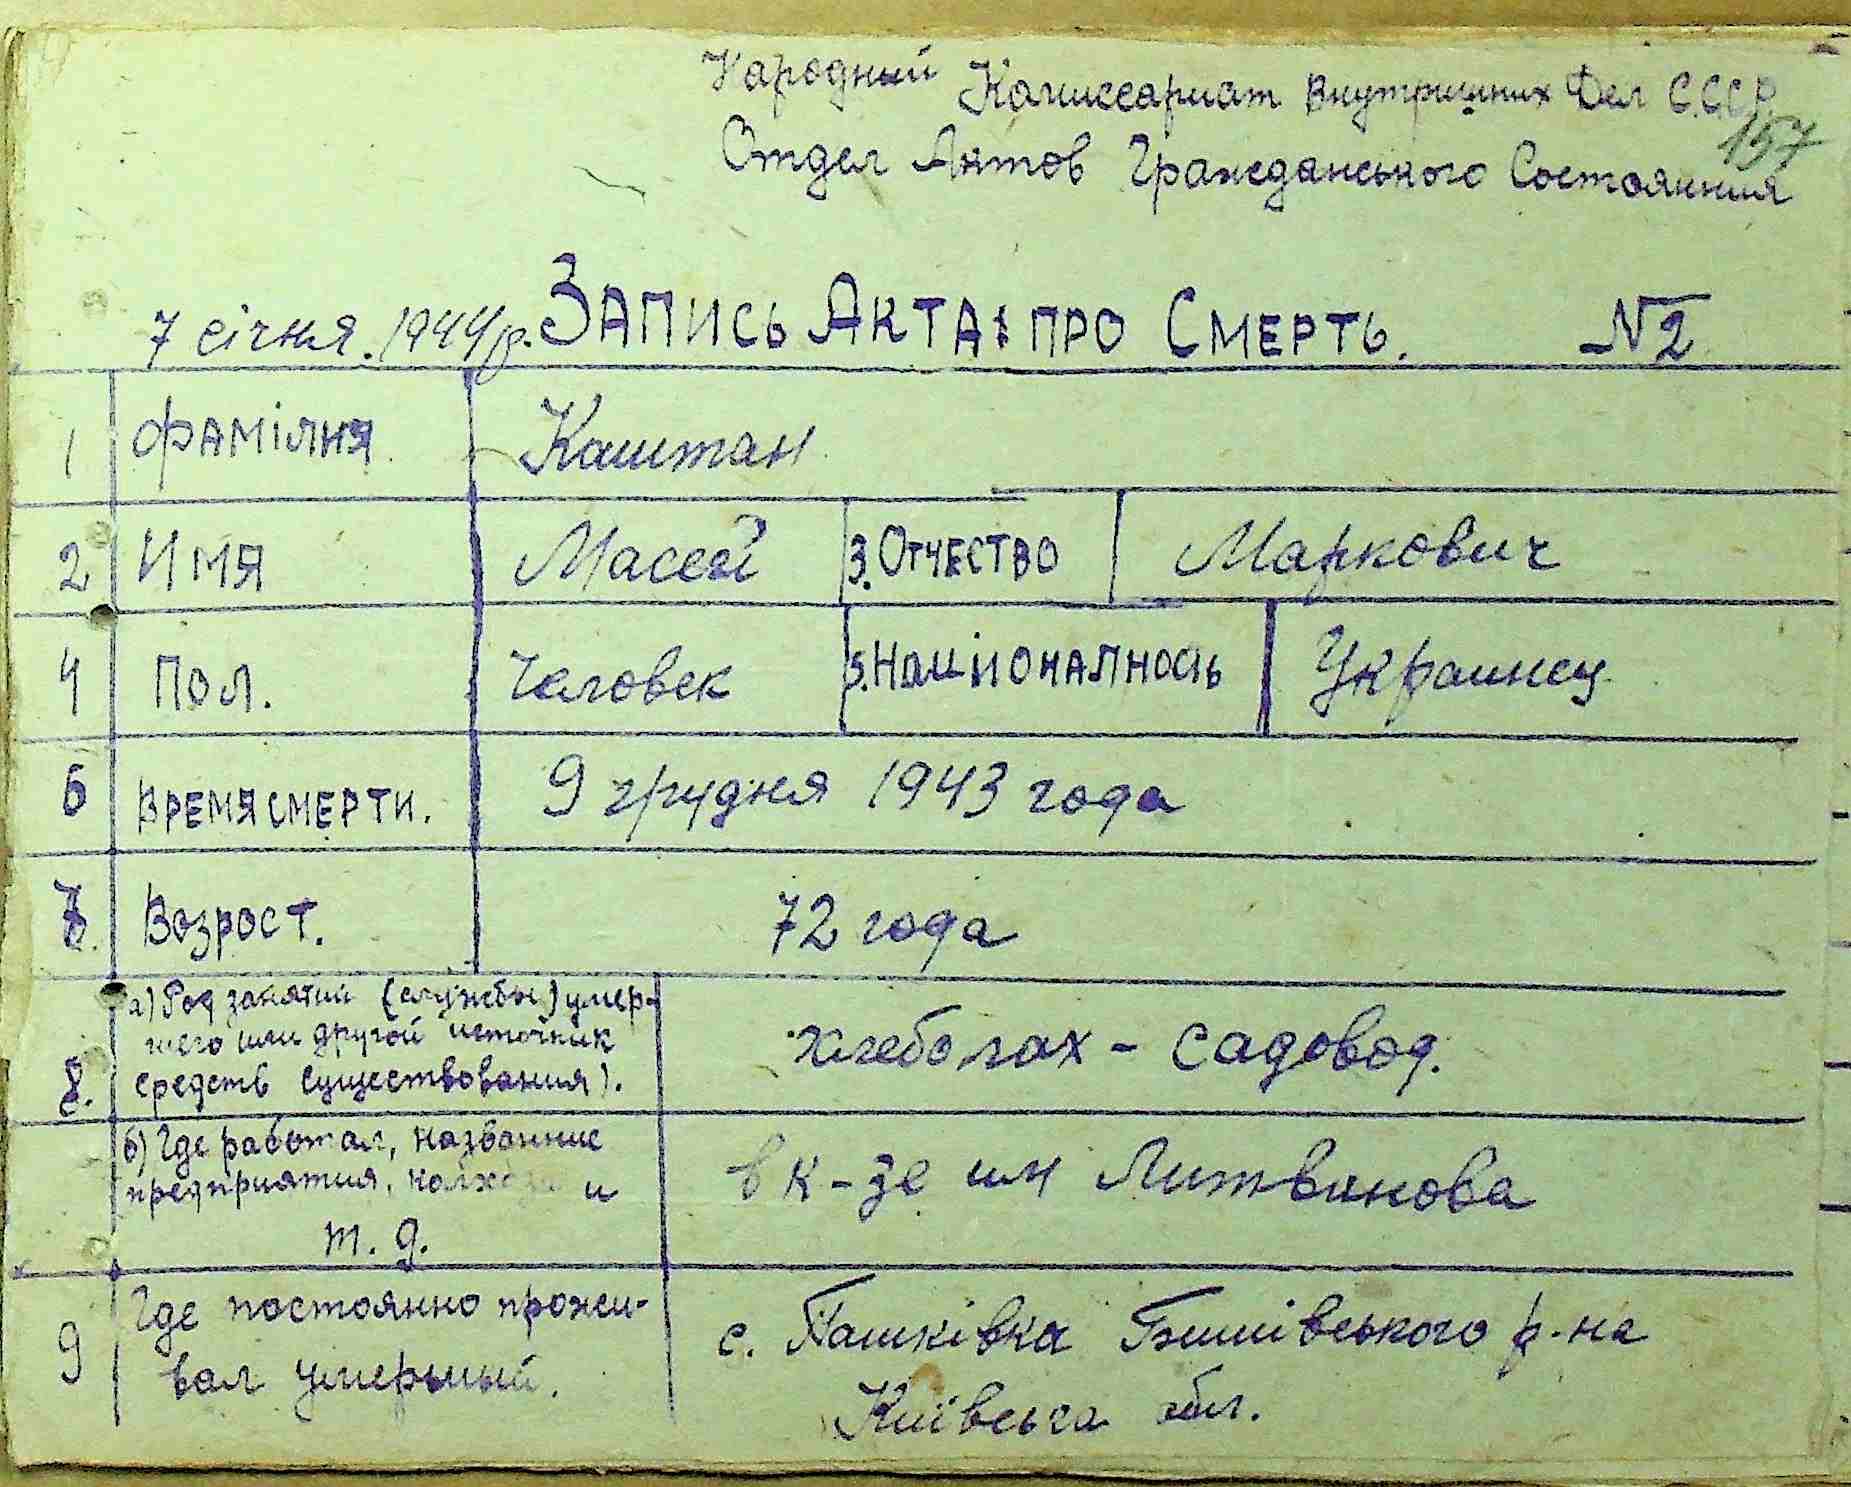 Народный Комиссариат Внутришних Дел С.С.С.Р.
157
Отдел Актов Гражеданського Состоянния
7 січня. 1944 р. Запись Акта: про Смерть. №2
1 Фамілия Каштан
2 Имя Масей 3. Отчество Маркович
4 Пол. Человек 5. Націоналность Украинец
6 Время смерти. 9 грудня 1943 года
7. Возрост. 72 года
а) Род занятий (службы) умер-
шего или другой источник
средств существования).
8. хлеболах - садовод.
б) Где работал, названние
предприятия, колхоза и
т. д.
в к-зе им Литвинова
9 Где постоянно прожи-
вал умерьший.
с. Пашківка Бишівського р-на
Київська обл.